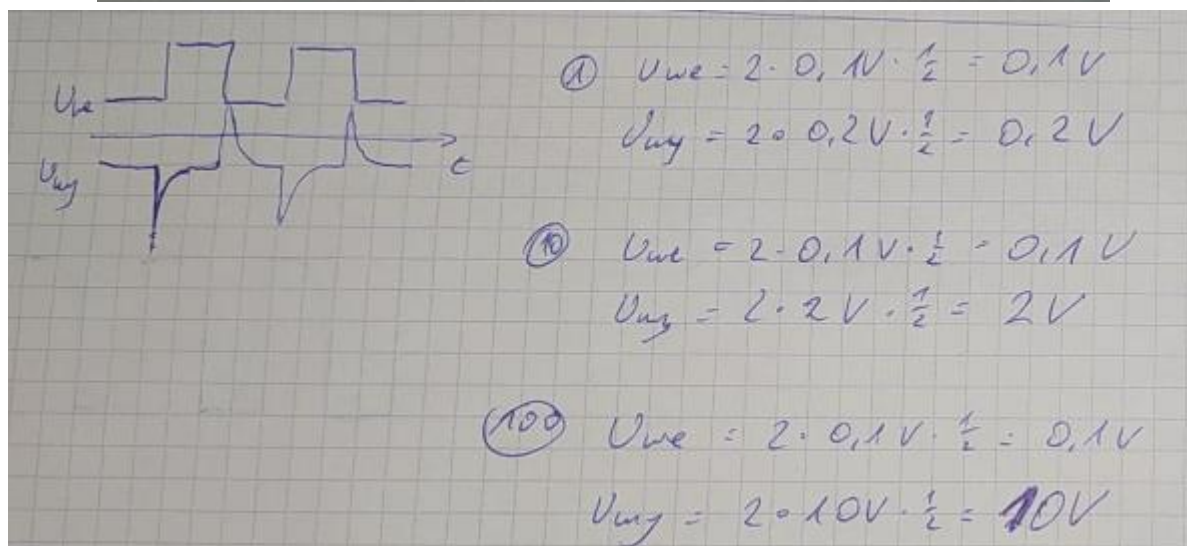 Uwe
Uwy
t
① Uwe = 2 · 0,1V · 1/2 = 0,1V
Uwy = 2 · 0,2V · 1/2 = 0,2V
⑩ Uwe = 2 · 0,1V · 1/2 = 0,1V
Uwy = 2 · 2V · 1/2 = 2V
100 Uwe = 2 · 0,1V · 1/2 = 0,1V
Uwy = 2 · 10V · 1/2 = 10V